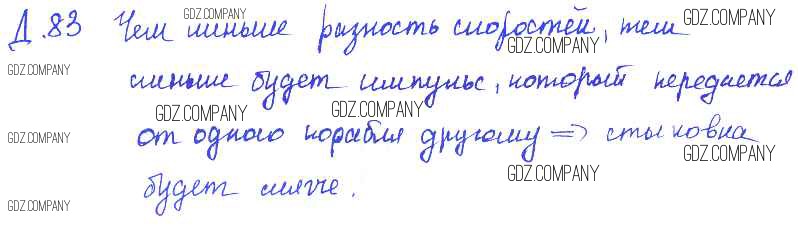 Д.83 Чем меньше разность скоростей, тем
меньше будет импульс, который передается
от одного корабля другому => стыковка
будет мягче.
GDZ.COMPANY
GDZ.COMPANY
GDZ.COMPANY
GDZ.COMPANY
GDZ.COMPANY
GDZ.COMPANY
GDZ.COMPANY
GDZ.COMPANY
GDZ.COMPANY
GDZ.COMPANY
GDZ.COMPANY